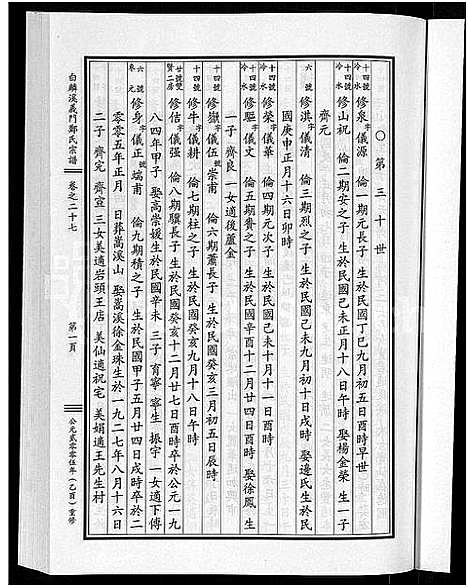 ○第三十世
十四號 冷水 修泉 字儀源 倫一期元長子 生於民國丁巳九月初五日酉時早世
十四號 冷水 修山 祝 倫二期安之子 生於民國己未正月十八日午時 娶楊金榮 生一子
齊元
六號 修淇 字儀清 倫三期烈之子 生於民國己未九月初十日戌時 娶邊氏生於民
國庚申正月十六日卯時
十四號 冷水 修榮 字儀華 倫四期元次子 生於民國己未十月十一日酉時
十四號 冷水 修驅 字儀文 倫五期貴之子 生於民國辛酉十二月廿四日酉時 娶徐鳳 生
一子 齊良 一女適後蘆金
十四號 修嶽 字儀伍 崇甫 倫六期蕭長子 生於民國癸亥三月初五日辰時
十四號 修牛 字儀耕 倫七期柱之子 生於民國癸亥九月十八日午時
廿號雙 賢二房 修佶 字儀强 倫八期驥長子 生於民國癸亥十二月廿七日酉時卒於公元一九
八四年甲子 娶高崇媛生於民國辛未 三子 育寧 寧生 振宇 一女適下傅
六號 叅元 修身 字儀正 號端甫 倫九期積之子 生於民國甲子五月廿四日戌時卒於二
零零五年正月 日葬嵩溪山 娶嵩溪徐金珠生於一九二七年八月十六日
二子 齊宪 齊宣 三女美適岩頭王店 美仙適祝宅 美娟適王先生村
白麟溪義門鄭氏宗譜
卷之二十七
第一頁
公元貳零零伍年(乙酉)重修